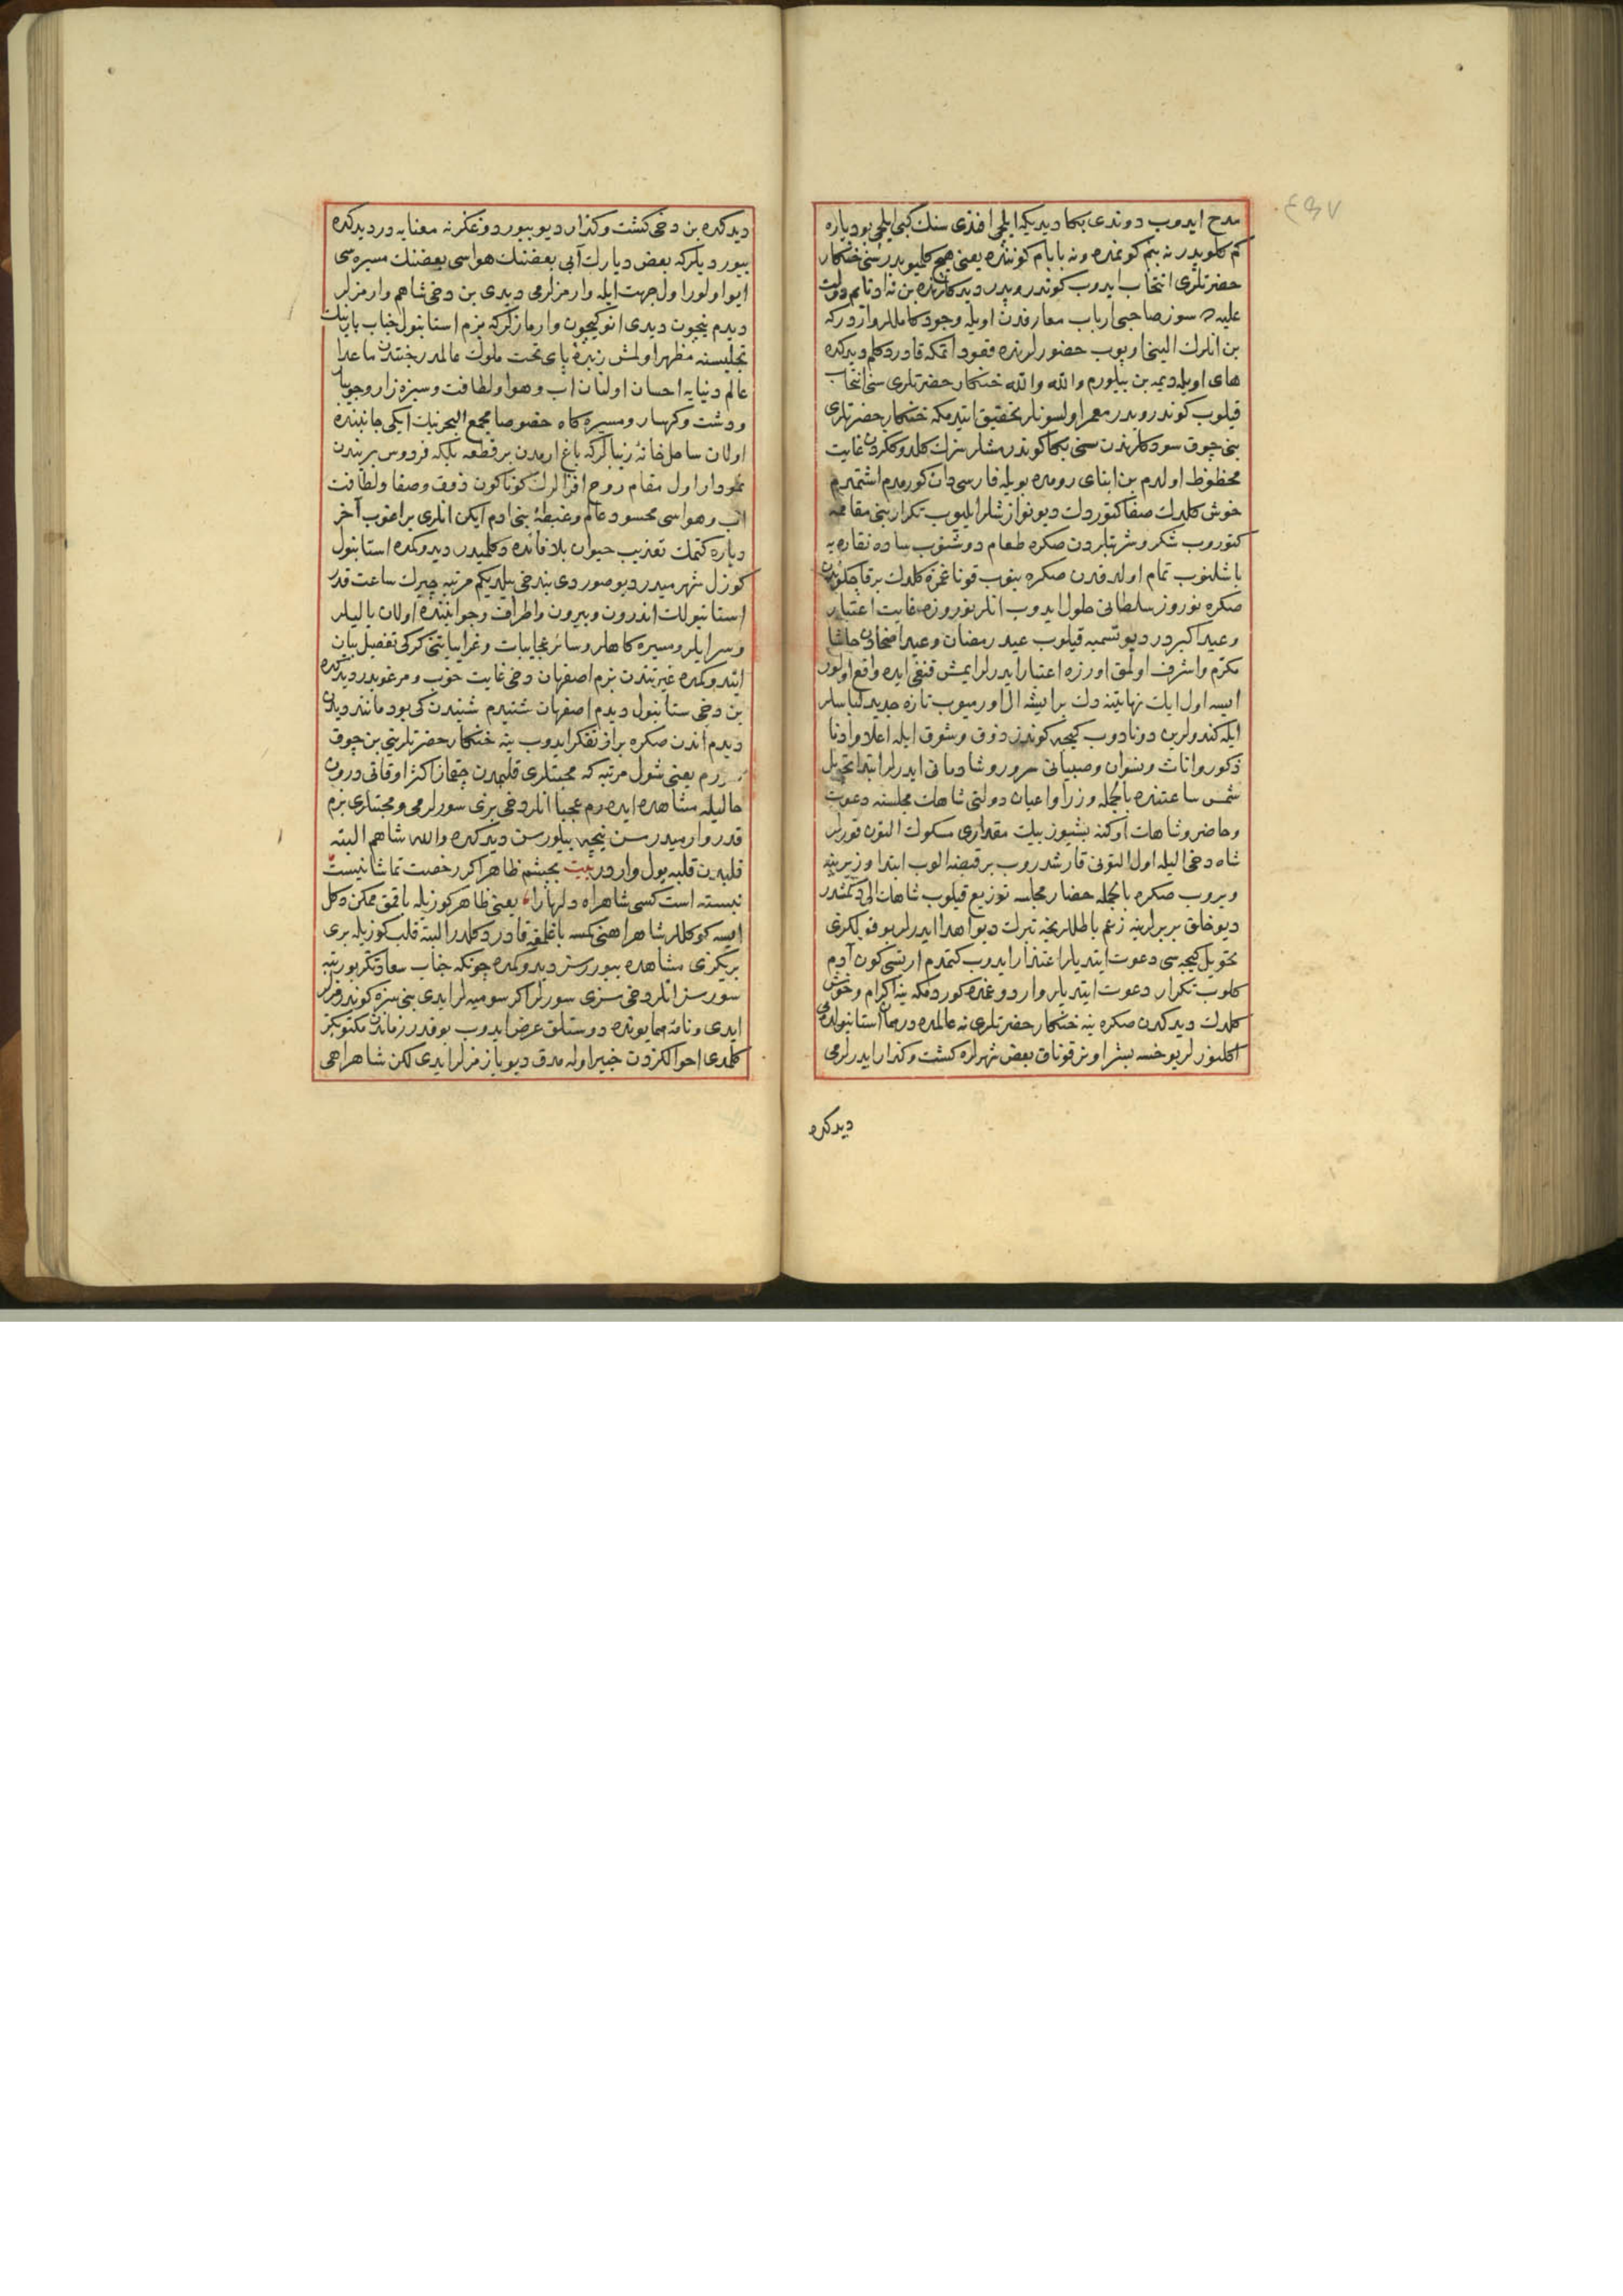 ٤٩٧
مدح ایدوب دوندی بکا دیدیکه ایلچی افندی سنك کبی ایلچی بو دیاره
کم کلوبدر نه بنم کونمده و نه بابام کوننده یعنی هیچ کلمیوبدر سنی خنکار
حضرتلری انتخاب ایدوب کوندروبدر دیدکلرنده بن نه ادنایم دولت
علیه ده سوز صاحبی ارباب معارفدن اویله وجود کامللر واردر که
بن انلرك الینی اوپوب حضورلرنده قعود اتمکه قادر دکلم دیدکده
های اویله دیمه بن بیلورم والله والله خنکار حضرتلری سنی انتخاب
قیلوب کوندروبدر معمر اولسونلر تحقیق ایتدمکه خنکار حضرتلری
بنی چوق سودکلرندن سنی بکا کوندرمشلر سزك کلدوککزدن غایت
محظوظ اولدم بن ابنای رومده بویله فارسی دان کورمدم اشتمدم
خوش کلدك صفا کتوردك دیو نوازشلر ایلیوب تکرار بنی مقاممه
کتوروب شکر و شربتلردن صکره طعام دوشنوب ساده نقاره یه
باشلنوب تمام اولدقدن صکره بنوب قوناغمزه کلدك برقاچ کوندن
صکره نوروز سلطانی حلول ایدوب انلر نوروزه غایت اعتبار
و عید اکبردر دیو تسمیه قیلوب عید رمضان و عید اضحادن حاشا
مکرم و اشرف اولمق اوزره اعتبار ایدرلر ایمش قنغی ایده واقع اولور
ایسه اول ایك نهایتنه دك بر ایشه ال اورمیوب تازه جدید لباسلر
ایله کندولرین دونادوب کیجه کوندز ذوق و شوق ایله اعلا و ادنا
ذکور و اناث و نسوان و صبیانی سرور و شادمانی ایدرلر ابتدا تحویل
شمس ساعتنده بالجمله وزرا و اعیان دولتی شاهك مجلسنه دعوت
و حاضر و شاهك اوکنه بشیوز بیك مقداری مسکوك التون قورلر
شاه دخی الیله اول التونی قارشدروب بر قبضه الوب ابتدا وزیرینه
ویروب صکره بالجمله حضار مجلسه توزیع قیلوب شاهك الی دکمشدر
دیو خلق بربرلرینه زعم باطللرنجه تبرك دیو اهدا ایدرلر بو فقیر لکری
تحویل کیجه سی دعوت ایتدیلر اعتذار ایدوب کتمدم ارتسی کون آدم
کلوب تکرار دعوت ایتدیلر واردوغمده کوردمکه ینه اکرام و خوش
کلدك دیدکدن صکره ینه خنکار حضرتلری نه عالمده در همان استانبولده می
اکلنورلر یوخسه بشر اونر قوناق بعض شهرلره کشت و کذار ایدرلرمی
دیدکده
دیدکده بن دخی کشت و کذار دیو بیوردوغکز نه معنایه در دیدکده
بیوردیلر که بعض دیارك آبی بعضنك هواسی بعضنك مسیره سی
ایو اولور اول جهت ایله وارمزلرمی دیدی بن دخی شاهم وارمزلر
دیدم نیچون دیدی انوکیچون وارمازلر که بزم استانبول جناب بارینك
تجلیسنه مظهر اولمش زبده پای تخت ملوك عالمدر جنتدن ماعدا
عالم دنیایه احسان اولنان اب و هوا و لطافت و سبزه زار و جویبار
و دشت و کهسار و مسیره کاه خصوصا مجمع البحرینك ایکی جانبنده
اولان ساحل خانه زیبالر که باغ ارمدن بر قطعه بلکه فردوس بریندن
نمودار اول مقام روح افزالرك کوناکون ذوق و صفا و لطافت
اب و هواسی محسود عالم و غبطۀ بنی ادم ایکن انلری براغوب آخر
دیاره کتمك تعذیب حیوان بلا فائده دکلمیدر دیدوکمده استانبول
کوزل شهرمیدر دیو صوردی بندخی بلدیکم مرتبه چیرك ساعت قدر
استانبولك اندرون و بیرون و اطراف و جوانبنده اولان یالیلر
و سرایلر و مسیره کاهلر و سائر عجایبات و غرایباتنی کرکی تفصیل بیان
ایتدوکمده غیرتندن بزم اصفهان دخی غایت خوب و مرغوبدر دیدکده
بن دخی ستانبول دیدم اصفهان شنیدم شنیدن کی بود مانند دیدن
دیدم اندن صکره براز تفکر ایدوب ینه خنکار حضرتلرینی بن چوق
سورم یعنی شول مرتبه که محبتلری قلبمدن چقماز اکثر اوقاتی درون
حالیله مشاهده ایدەرم عجبا انلر دخی بزی سورلرمی و محبتلری بزم
قدر وارمیدر سن نیجه بیلورسن دیدکده والله شاهم البته
قلبدن قلبه یول واردر بیت بچشم ظاهر اکر رخصت تماشا نیست
نبسته است کسی شاهراه دلهارا یعنی ظاهر کوزیله باقمق ممکن دکل
ایسه کوکللر شاهراهنی کمسه باغلمغه قادر دکلدر البته قلب کوزیله بری
بریکزی مشاهده بیوررسز دیدوکمده چونکه جناب سعادتکز بو رتبه
سورسز انلر دخی سزی سورلر اکر سومیه لر ایدی بنی سزه کوندرمزلر
ایدی و نامۀ همایونده دوستلق عرض ایدوب بو قدر زماندن مکتوبکز
کلمدی احوالکزدن خبیر اوله مدق دیو یازمزلر ایدی لکن شاهراهی